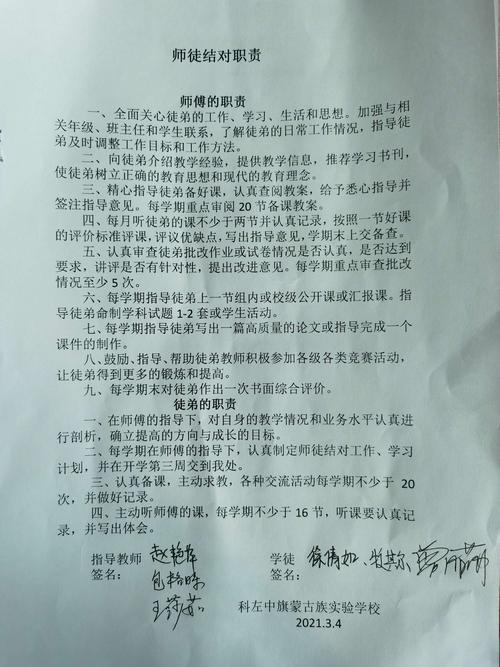 师徒结对职责
师傅的职责
一、全面关心徒弟的工作、学习、生活和思想。加强与相
关年级、班主任和学生联系，了解徒弟的日常工作情况，指导徒
弟及时调整工作目标和工作方法。
二、向徒弟介绍教学经验，提供教学信息，推荐学习书刊，
使徒弟树立正确的教育思想和现代的教育理念。
三、精心指导徒弟备好课，认真查阅教案，给予悉心指导并
签注指导意见。每学期重点审阅 20 节备课教案。
四、每月听徒弟的课不少于两节并认真记录，按照一节好课
的评价标准评课，评议优缺点，写出指导意见，学期末上交备查。
五、认真审查徒弟批改作业或试卷情况是否认真，是否达到
要求，讲评是否有针对性，提出改进意见。每学期重点审查批改
情况至少 5 次。
六、每学期指导徒弟上一节组内或校级公开课或汇报课。指
导徒弟命制学科试题 1-2 套或学生活动。
七、每学期指导徒弟写出一篇高质量的论文或指导完成一个
课件的制作。
八、鼓励、指导、帮助徒弟教师积极参加各级各类竞赛活动，
让徒弟得到更多的锻炼和提高。
九、每学期末对徒弟作出一次书面综合评价。
徒弟的职责
一、在师傅的指导下，对自身的教学情况和业务水平认真进
行剖析，确立提高的方向与成长的目标。
二、每学期在师傅的指导下，认真制定师徒结对工作、学习
计划，并在开学第三周交到我处。
三、认真备课，主动求教，各种交流活动每学期不少于 20
次，并做好记录。
四、主动听师傅的课，每学期不少于 16 节，听课要认真记
录，并写出体会。
指导教师 学徒 徐倩如、
签名： 签名：
科左中旗蒙古族实验学校
2021.3.4